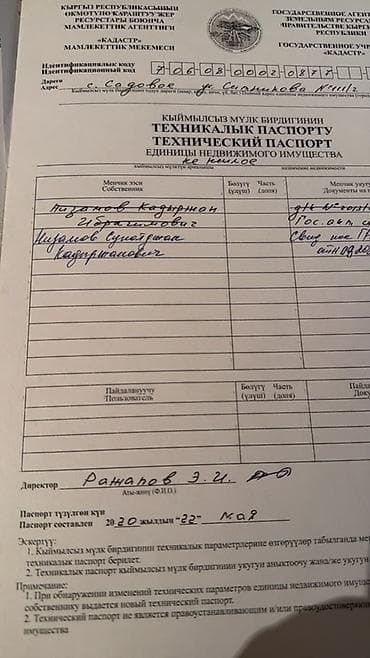 КЫРГЫЗ РЕСПУБЛИКАСЫНЫН
ӨКМӨТҮНӨ КАРАШТУУ ЖЕР
РЕСУРСТАРЫ БОЮНЧА
МАМЛЕКЕТТИК АГЕНТТИГИ
«КАДАСТР»
МАМЛЕКЕТТИК МЕКЕМЕСИ
ГОСУДАРСТВЕННОЕ АГЕН
ЗЕМЕЛЬНЫМ РЕСУРСА
ПРАВИТЕЛЬСТВЕ КЫРГ
РЕСПУБЛИКИ
ГОСУДАРСТВЕННОЕ УЧР
«КАДАСТР»
Идентификациялык коду
Идентификационный код 7 06 08 0002 0877
Дареги
Адрес с. Садовое
КЫЙМЫЛСЫЗ МҮЛК БИРДИГИНИН
ТЕХНИКАЛЫК ПАСПОРТУ
ТЕХНИЧЕСКИЙ ПАСПОРТ
ЕДИНИЦЫ НЕДВИЖИМОГО ИМУЩЕСТВА
не жилое
Менчик ээси
Собственник
Бөлүгү Часть
(үлүш) (доля)
Менчик укугу
Документы на п
Низамов Кадыржан
Ибрагимович
Гос. акт
Низамов Сухатджан
Кадыржанович
Пайдалануучу
Пользователь
Бөлүгү Часть
(үлүш) (доля)
Пайда
Доку
Директор Ражапов Э. И.
Аты-жөнү (Ф.И.О.)
Паспорт түзүлгөн күн
Паспорт составлен 2020 жылдын "22" мая
Эскертүү:
1. Кыймылсыз мүлк бирдигинин техникалык параметрлерине өзгөрүүлөр табылганда ме
техникалык паспорт берилет.
2. Техникалык паспорт кыймылсыз мүлк бирдигинин укугун аныктоочу жана/же укугун
Примечание:
1. При обнаружении изменений технических параметров единицы недвижимого имущес
собственнику выдается новый технический паспорт.
2. Технический паспорт не является правоустанавливающим и/или правоудостоверяю
имущества